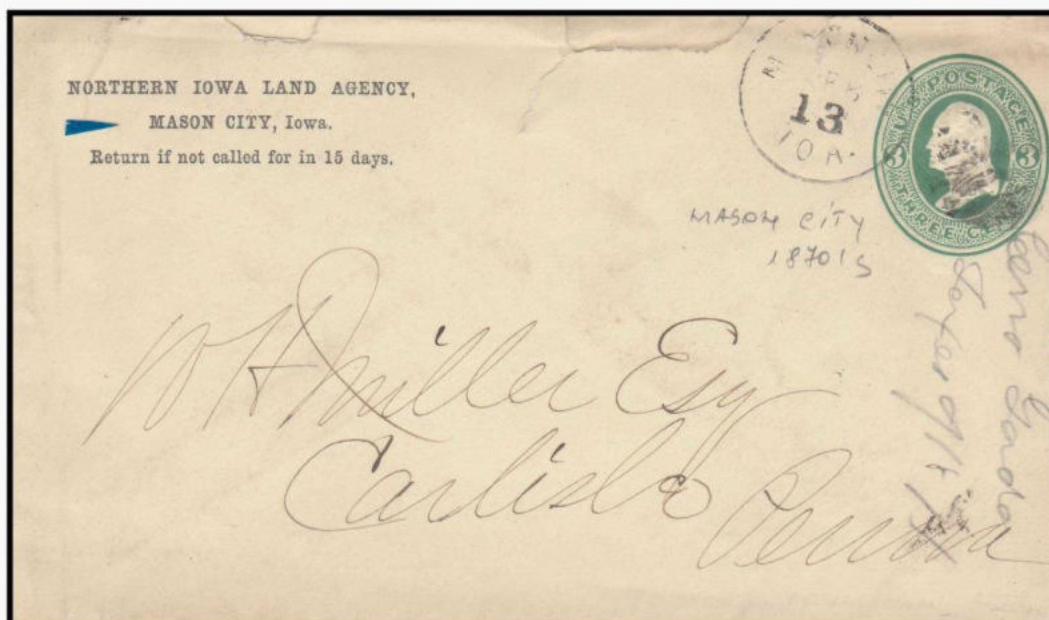 NORTHERN IOWA LAND AGENCY,
MASON CITY, Iowa.
Return if not called for in 15 days.
13
IOA.
U.S. POSTAGE
3 3
THREE CENTS
MASON CITY
1870'S
W H Miller Esq
Carlisle
Penna
Cerro Gordo